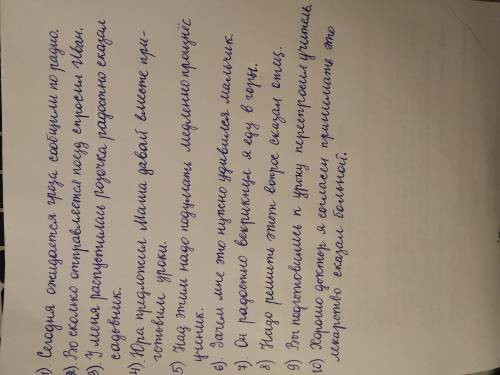 1) Сегодня ожидается гроза сообщили по радио.
2) Во сколько отправляется поезд спросил Иван.
3) У меня распустилась розочка радостно сказал
садовник.
4) Юра предложил Маша давай вместе при-
готовим уроки.
5) Над этим надо подумать медленно произнёс
ученик.
6) Зачем мне это нужно удивился мальчик.
7) Он радостно вскрикнул я еду в горы.
8) Надо решить этот вопрос сказал отец.
9) Вы подготовились к уроку переспросил учитель.
10) Хорошо доктор я согласен принимать это
лекарство сказал больной.